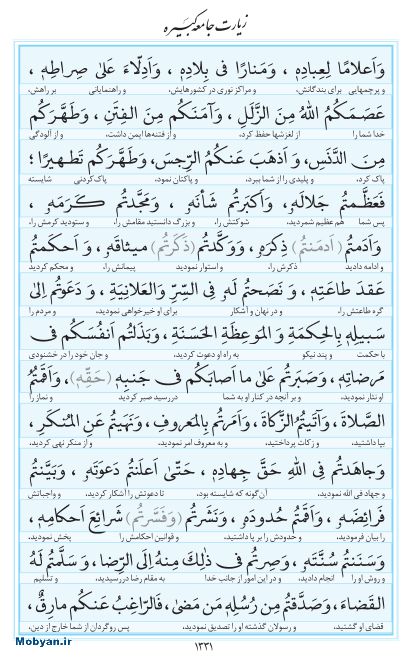 زیارت جامعه کبیره
وَاَعلامًا لِعِبادِهٖ ، وَمَنارًا فی بِلادِهٖ ، وَاَدِلّاءَ عَلیٰ صِراطِهٖ ،
و پرچمهایی برای بندگانش، و مراکز نوری در کشورهایش، و راهنمایانی بر راهش،
عَصَمَکُمُ اللهُ مِنَ الزَّلَلِ ، وَآمَنَکُم مِنَ الفِتَنِ ، وَطَهَّرَکُم
خدا شما را از لغزشها حفظ کرد، و از فتنه‌ها ایمن داشت، و از آلودگی
مِنَ الدَّنَسِ ، وَ اَذهَبَ عَنکُمُ الرِّجسَ، وَطَهَّرَکُم تَطهیرًا ؛
پاک کرد، و پلیدی را از شما ببرد، و پاکتان نمود، پاک‌کردنی شایسته
فَعَظَّمتُم جَلالَهٗ ، وَاَکبَرتُم شَأنَهٗ ، وَمَجَّدتُم کَرَمَهٗ ،
پس شما هم عظیم شمردید، شوکتش را، و بزرگ دانستید مقامش را، و ستودید کرمش را،
وَاَدَمتُم (اَدمَنتُم) ذِکرَهٗ ، وَوَکَّدتُم (ذَکَرتُم) میثاقَهٗ ، وَ اَحکَمتُم
و ادامه دادید ذکرش را، و استوار نمودید پیمانش را، و محکم کردید
عَقدَ طاعَتِهٖ ، وَ نَصَحتُم لَهٗ فِی السِّرِّ وَالعَلانِیَةِ ، وَ دَعَوتُم اِلیٰ
گره طاعتش را، و در نهان و آشکار برای او خیرخواهی نمودید، و مردم را
سَبیلِهٖ بِالحِکمَةِ وَ المَوعِظَةِ الحَسَنَةِ ، وَبَذَلتُم اَنفُسَکُم فی
با حکمت و پند نیکو به راه او دعوت کردید، و جان خود را در خشنودی
مَرضاتِهٖ ، وَصَبَرتُم عَلیٰ ما اَصابَکُم فی جَنبِهٖ (حَقِّهٖ) ، وَاَقَمتُمُ
او نثار نمودید، و بر آنچه در کنار او به شما دررسید صبر کردید و نماز را
الصَّلاةَ ، وَآتَیتُمُ الزَّکاةَ ، وَاَمَرتُم بِالمَعروفِ، وَنَهَیتُم عَنِ المُنکَرِ ،
بپا داشتید، و زکات پرداختید، و به معروف امر نمودید، و از منکر نهی کردید،
وَجاهَدتُم فِی اللهِ حَقَّ جِهادِهٖ، حَتّیٰ اَعلَنتُم دَعوَتَهٗ ، وَبَیَّنتُم
و جهاد فی الله نمودید، آن‌گونه که شایسته بود، تا دعوتش را آشکار کردید، و واجباتش
فَرائِضَهٗ ، وَاَقَمتُم حُدودَهٗ، وَنَشَرتُم (وَفَسَّرتُم) شَرائِعَ اَحکامِهٖ ،
را بیان فرمودید، و حدودش را بر پا داشتید، و قوانین احکامش را پخش نمودید،
وَسَنَنتُم سُنَّتَهٗ ، وَصِرتُم فی ذٰلِکَ مِنهُ اِلَی الرِّضا، وَسَلَّمتُم لَهُ
و روش او را انجام دادید، و در این امور از جانب خدا به مقام رضا دررسیدید، و تسلیم
القَضاءَ، وَصَدَّقتُم مِن رُسُلِهٖ مَن مَضیٰ، فَالرّاغِبُ عَنکُم مارِقٌ،
قضای او گشتید، و رسولان گذشته او را تصدیق نمودید، پس روگردان از شما خارج از دین،
۱۳۳۱
Mobyan.ir